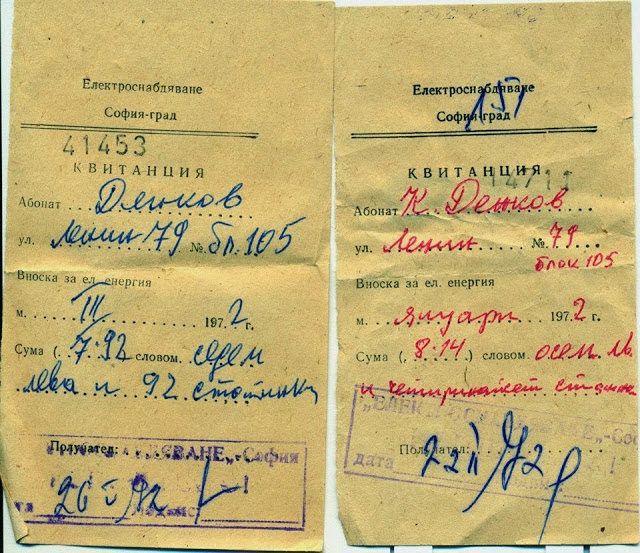 Електроснабдяване
София-град
41453
КВИТАНЦИЯ
Абонат Денков
ул. Ленин 79 № бл. 105
Вноска за ел. енергия
м. III 1972 г.
Сума (7.92 словом седем
лева и 92 стотинки
Получател:
-София
Електроснабдяване
София-град
КВИТАНЦИЯ
Абонат К Денков
ул. Ленин № 79
блок 105
Вноска за ел. енергия
м. януари 1972 г.
Сума (8.14) словом осем лв
и четиринайсет стотинки
Получател:
дата